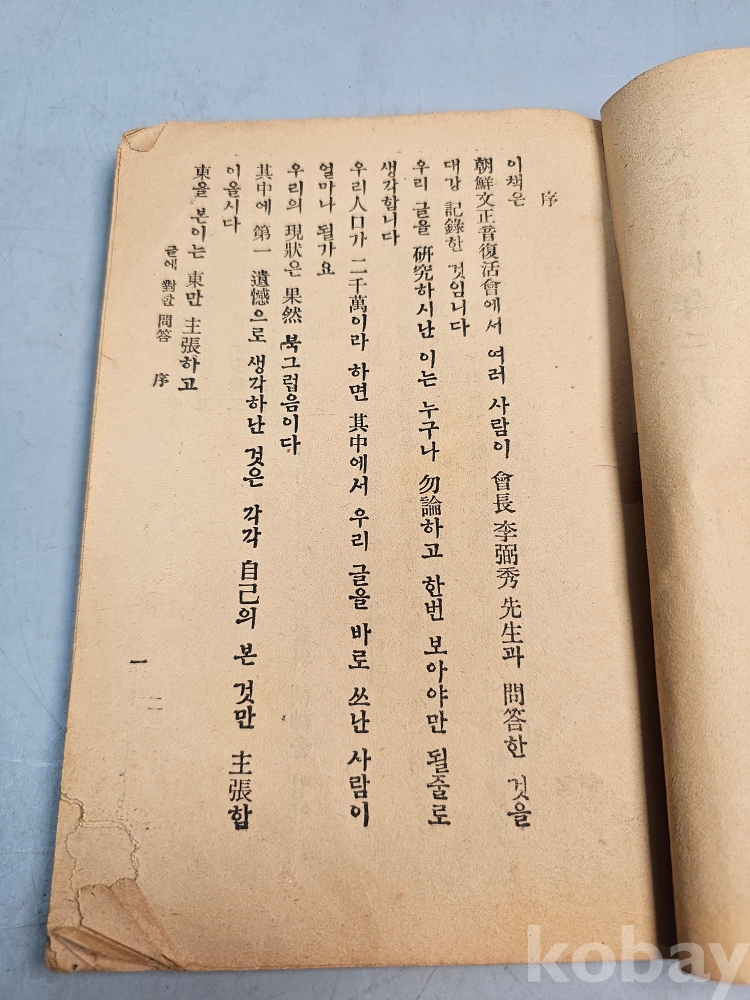 序
이책은
朝鮮文正音復活會에서 여러 사람이 會長 李弼秀 先生과 問答한 것을
대강 記錄한 것입니다
우리 글을 硏究하시난 이는 누구나 勿論하고 한번 보아야만 될줄로
생각합니다
우리人口가 二千萬이라 하면 其中에서 우리 글을 바로 쓰난 사람이
얼마나 될가요
우리의 現狀은 果然 북그럽음이다
其中에 第一 遺憾으로 생각하난 것은 각각 自己의 본 것만 主張함
이올시다
東을 본이는 東만 主張하고
글에 對한 問答 序
一
kobay